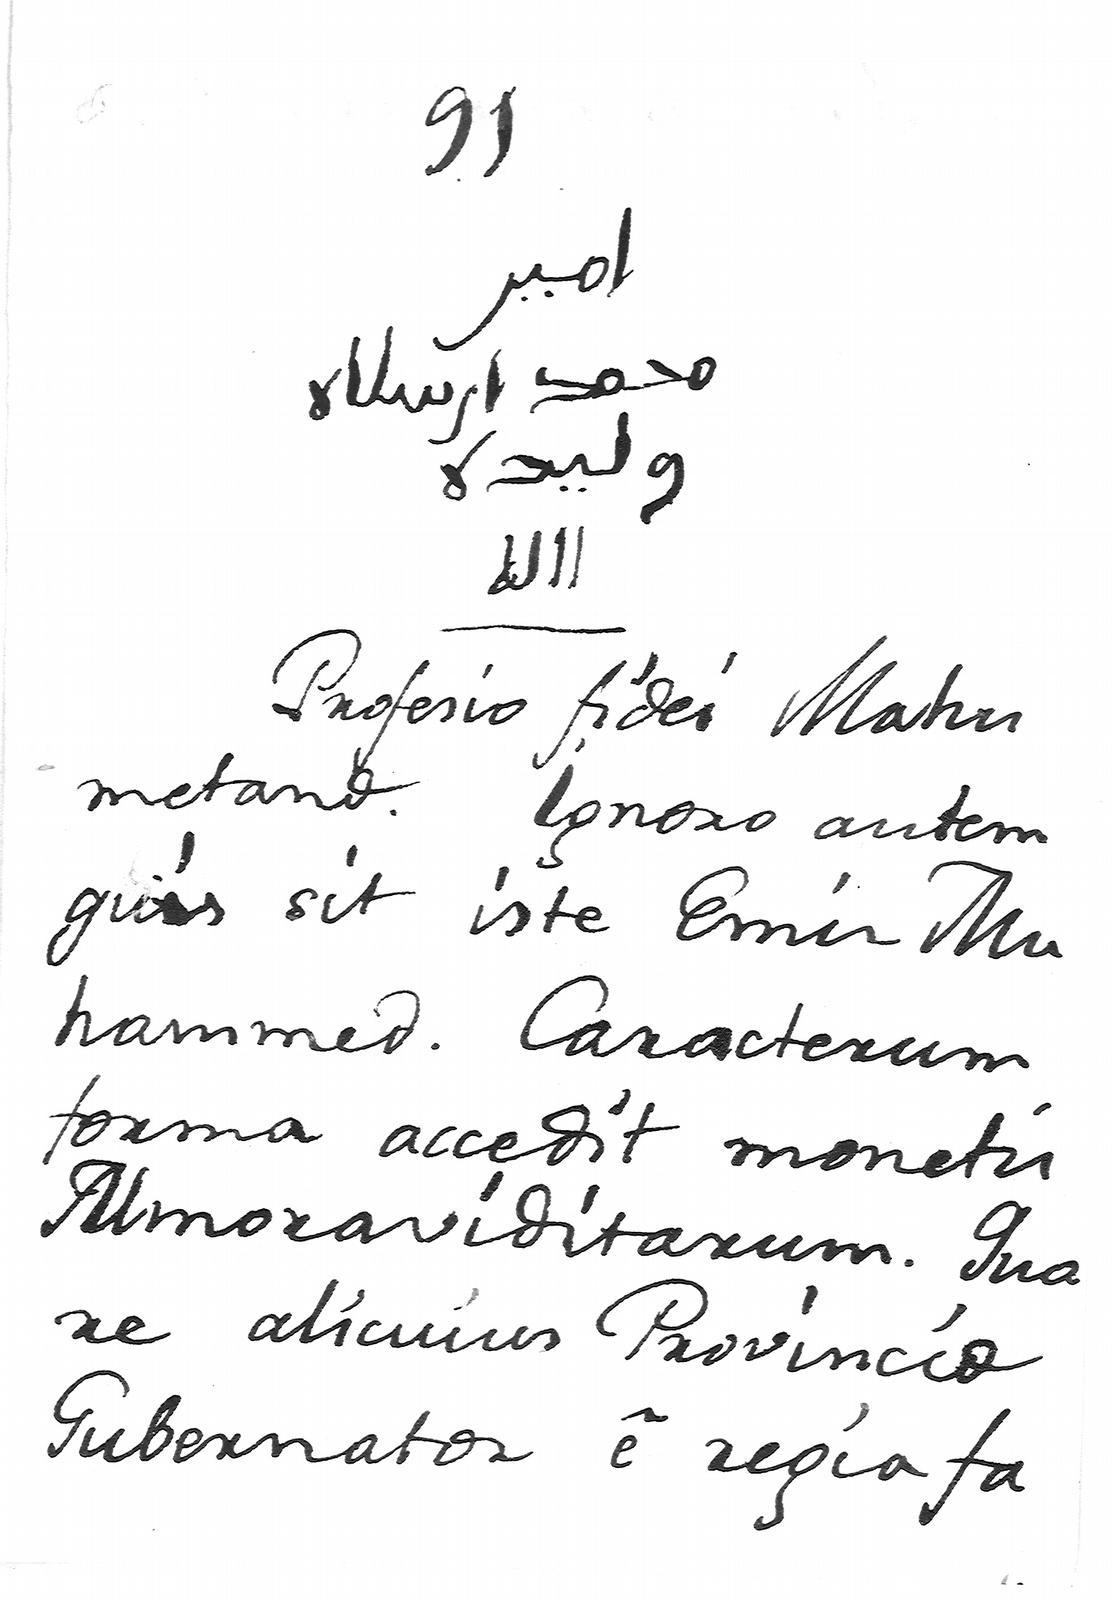 91
امير
محمد ارسلاه
وليده
الله
Profesio fidei Mahu
metanæ. Ignoro autem
quis sit iste Emir Mu
hammed. Caracterum
forma accedit monetis
Almoraviditarum. Qua
re alicuius Provinciæ
Gubernator ẽ regia fa